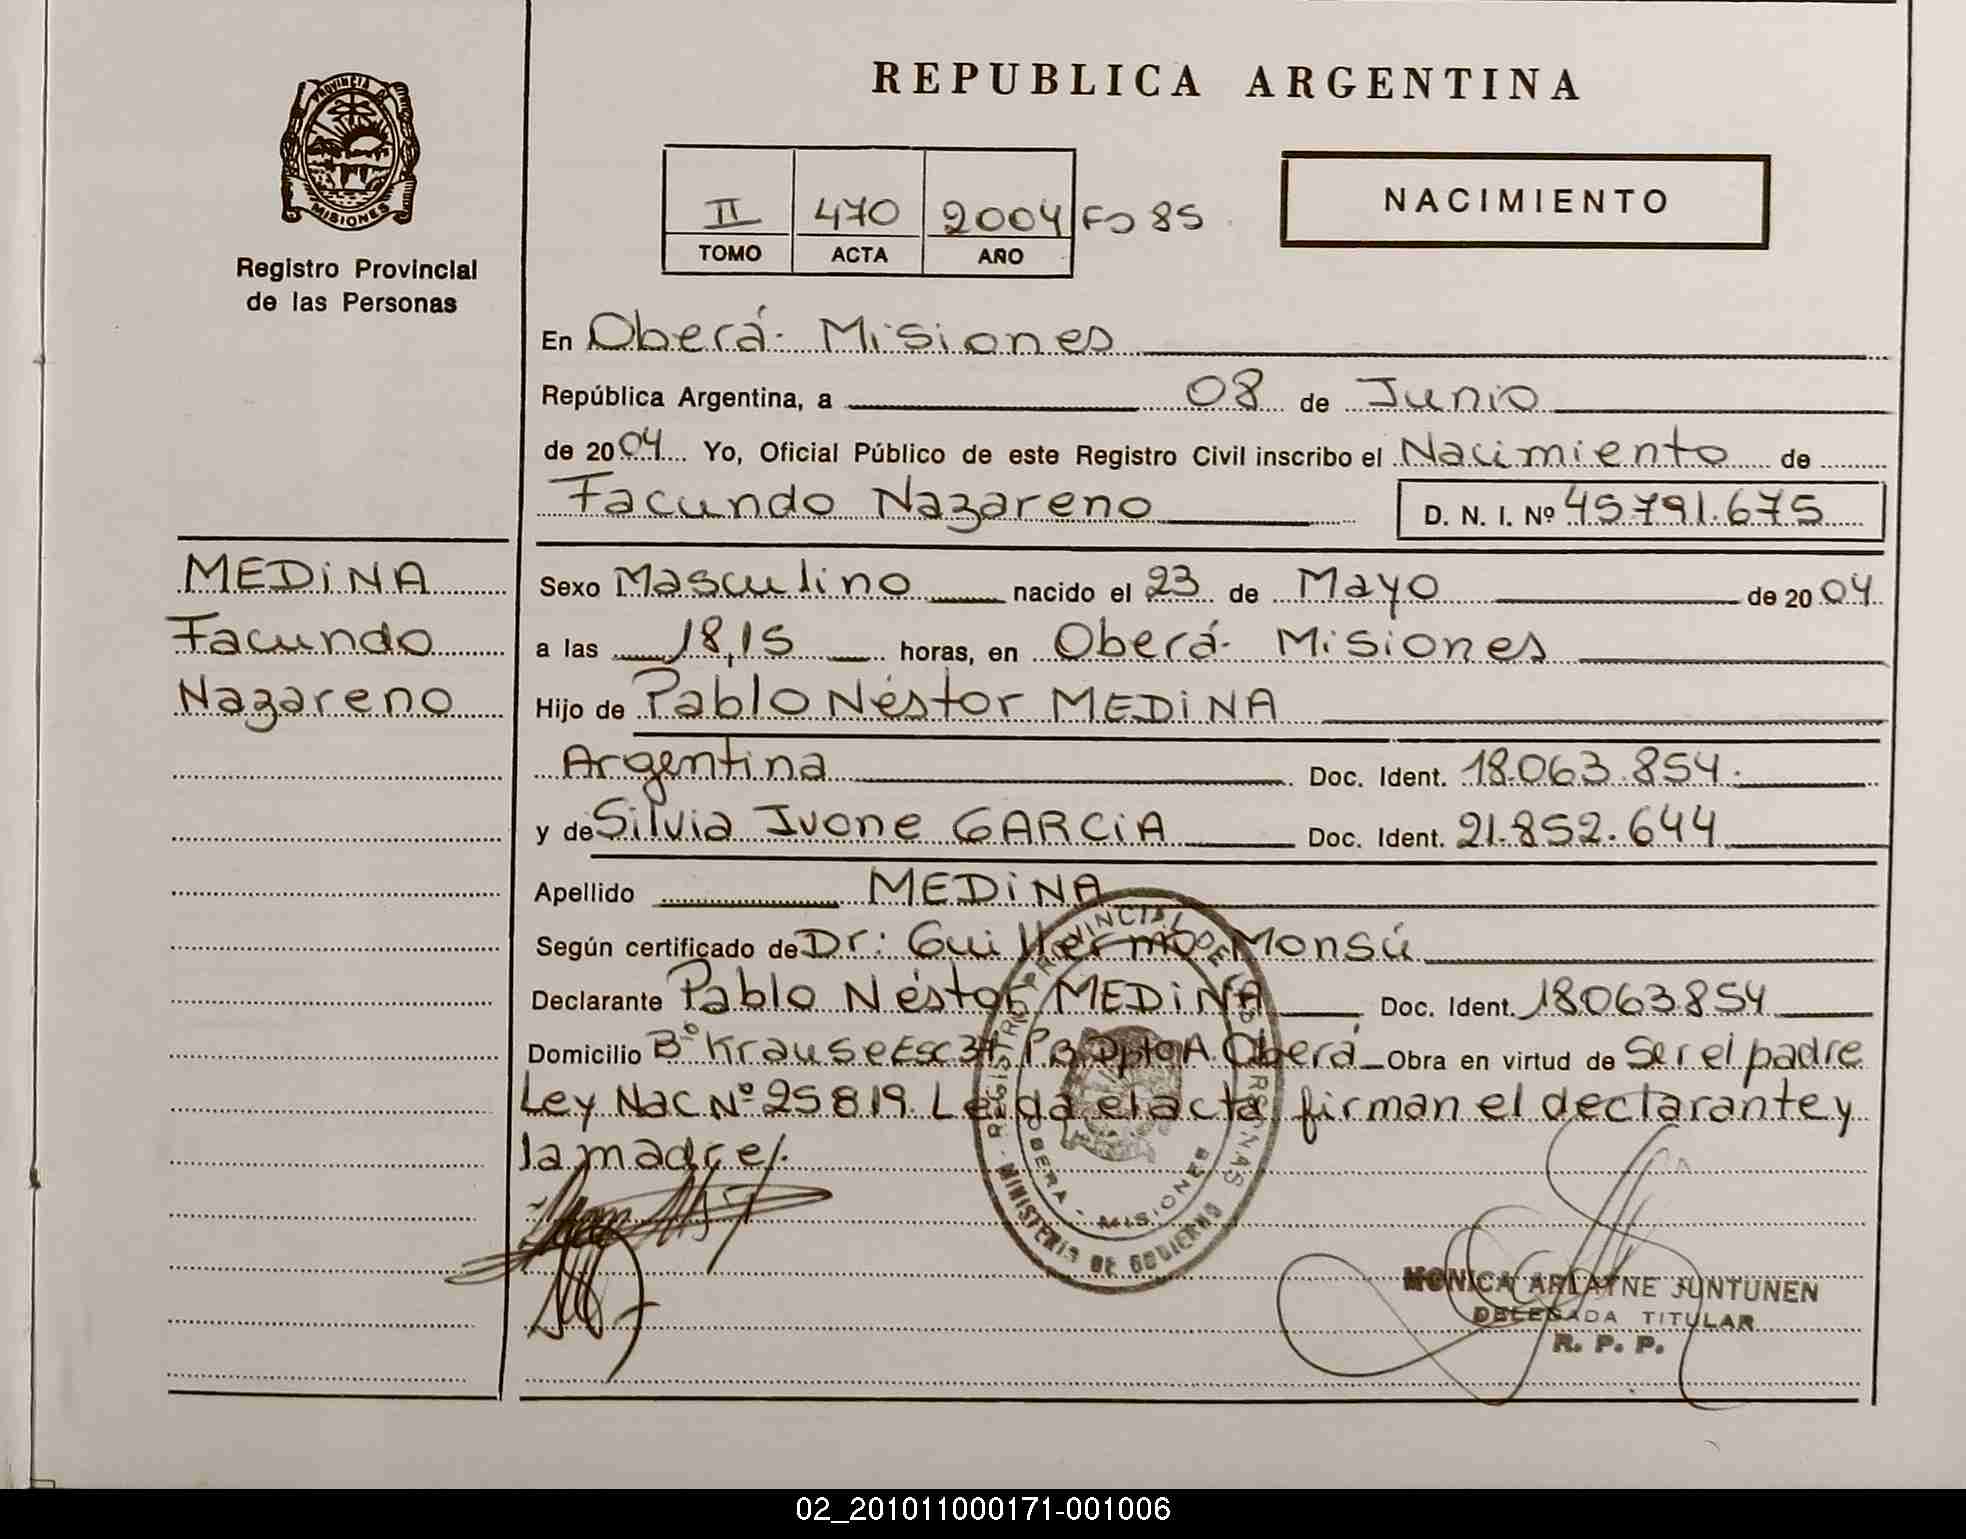 REPUBLICA ARGENTINA
PROVINCIA DE
MISIONES
Registro Provincial
de las Personas
II 470 2004 Fº 85
TOMO ACTA AÑO
NACIMIENTO
En Oberá - Misiones
República Argentina, a 08 de Junio
de 2004 Yo, Oficial Público de este Registro Civil inscribo el Nacimiento de
Facundo Nazareno D. N. I. Nº 45791.675
MEDINA
Facundo
Nazareno
Sexo Masculino nacido el 23 de Mayo de 2004
a las 18,15 horas, en Oberá - Misiones
Hijo de Pablo Néstor MEDINA
Argentina Doc. Ident. 18.063.854.
y de Silvia Ivone GARCIA Doc. Ident. 21.852.644
Apellido MEDINA
Según certificado de Dr: Guillermo Monsú
Declarante Pablo Néstor MEDINA Doc. Ident. 18063854
Domicilio Bº Krause Esc 34 PB Dpto A. Oberá Obra en virtud de Ser el padre
Ley Nac Nº 25819. Leida el acta, firman el declarante y
la madre/.
REGISTRO PROVINCIAL DE LAS PERSONAS
OBERA - MISIONES
MINISTERIO DE GOBIERNO
MONICA ARIAYNE JUNTUNEN
DELEGADA TITULAR
R. P. P.
02_201011000171-001006